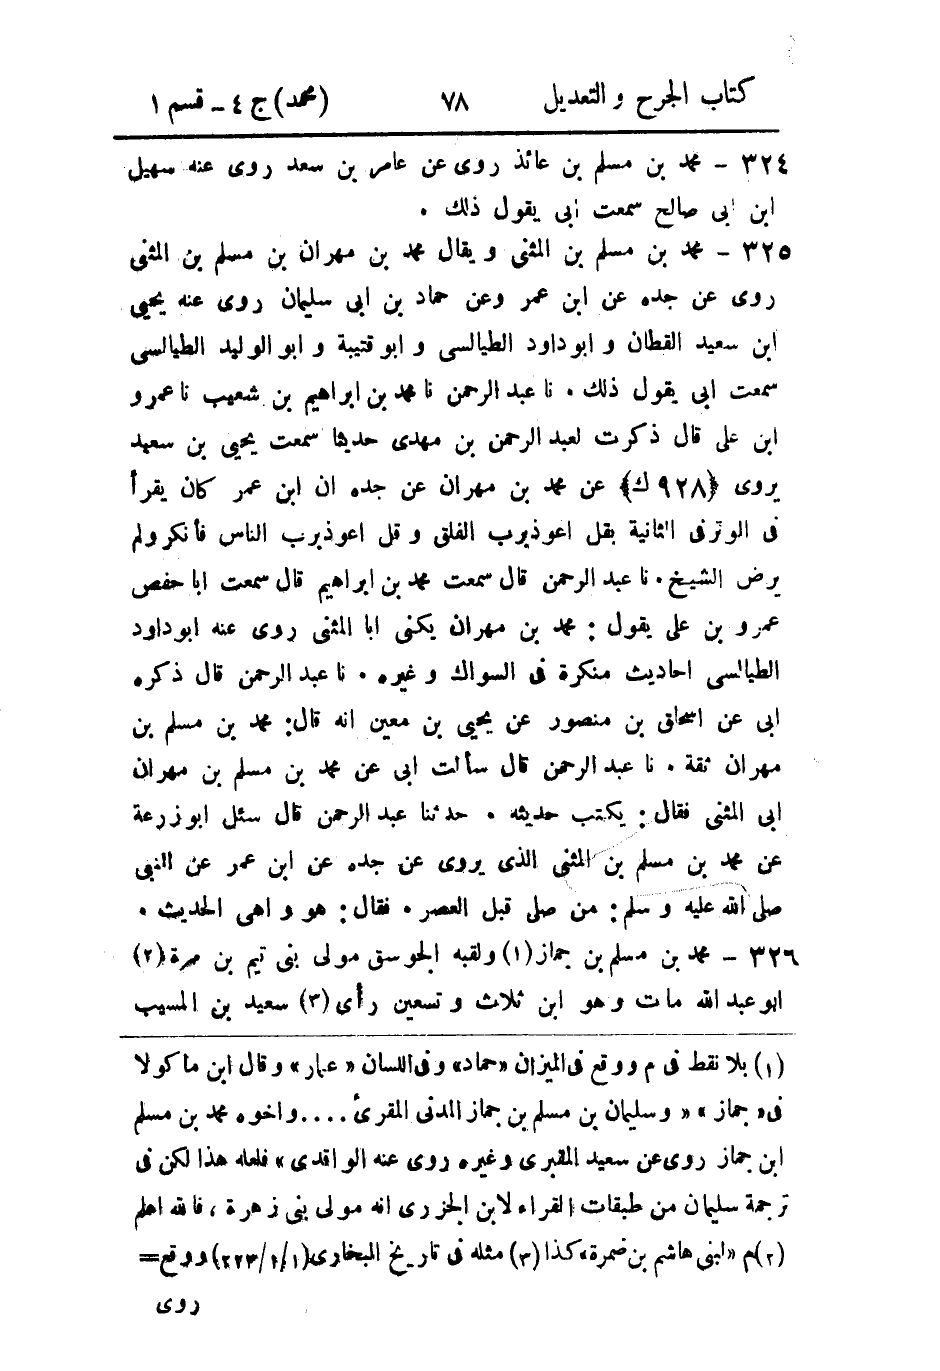 كتاب الجرح و التعديل ٧٨ (محمد) ج ٤ ــ قسم ١
٣٢٤ ــ محمد بن مسلم بن عائذ روى عن عامر بن سعد روى عنه سهيل
ابن ابى صالح سمعت ابى يقول ذلك ٠
٣٢٥ ــ محمد بن مسلم بن المثنى و يقال محمد بن مهران بن مسلم بن المثنى
روى عن جده عن ابن عمر وعن حماد بن ابى سليمان روى عنه يحيى
ابن سعيد القطان و ابو داود الطيالسى و ابو قتيبة و ابو الوليد الطيالسى
سمعت ابى يقول ذلك ٠ نا عبد الرحمن نا محمد بن ابراهيم بن شعيب نا عمرو
ابن على قال ذكرت لعبد الرحمن بن مهدى حديثا سمعت يحيى بن سعيد
يروى (٩٢٨ ك) عن محمد بن مهران عن جده ان ابن عمر كان يقرأ
فى الوتر فى الثانية بقل اعوذ برب الفلق و قل اعوذ برب الناس فأنكر ولم
يرض الشيخ ٠ نا عبد الرحمن قال سمعت محمد بن ابراهيم قال سمعت ابا حفص
عمرو بن على يقول : محمد بن مهران يكنى ابا المثنى روى عنه ابو داود
الطيالسى احاديث منكرة فى السواك و غيره ٠ نا عبد الرحمن قال ذكره
ابى عن اسحاق بن منصور عن يحيى بن معين انه قال: محمد بن مسلم بن
مهران ثقة ٠ نا عبد الرحمن قال سألت ابى عن محمد بن مسلم بن مهران
ابى المثنى فقال : يكتب حديثه ٠ حدثنا عبد الرحمن قال سئل ابو زرعة
عن محمد بن مسلم بن المثنى الذى يروى عن جده عن ابن عمر عن النبى
صلى الله عليه و سلم : من صلى قبل العصر ٠ فقال : هو و اهى الحديث ٠
٣٢٦ ــ محمد بن مسلم بن جماز (١) ولقبه الجوسق مولى بنى تيم بن مرة (٢)
ابو عبد الله مات و هو ابن ثلاث و تسعين رأى (٣) سعيد بن المسيب
(١) بلا نقط فى م ووقع فى الميزان «حماد» وفى اللسان «عمار» وقال ابن ماكولا
فى «جماز» «وسليمان بن مسلم بن جماز المدنى المقرئ .... واخوه محمد بن مسلم
ابن جماز روى عن سعيد المقبرى وغيره روى عنه الواقدى» فلعله هذا لكن فى
ترجمة سليمان من طبقات القراء لابن الجزرى انه مولى بنى زهرة ، فالله اعلم
(٢) م «لبنى هاشم بن ضمرة» كذا (٣) مثله فى تاريخ البخارى (١/١/٢٢٣) ووقع =
روى